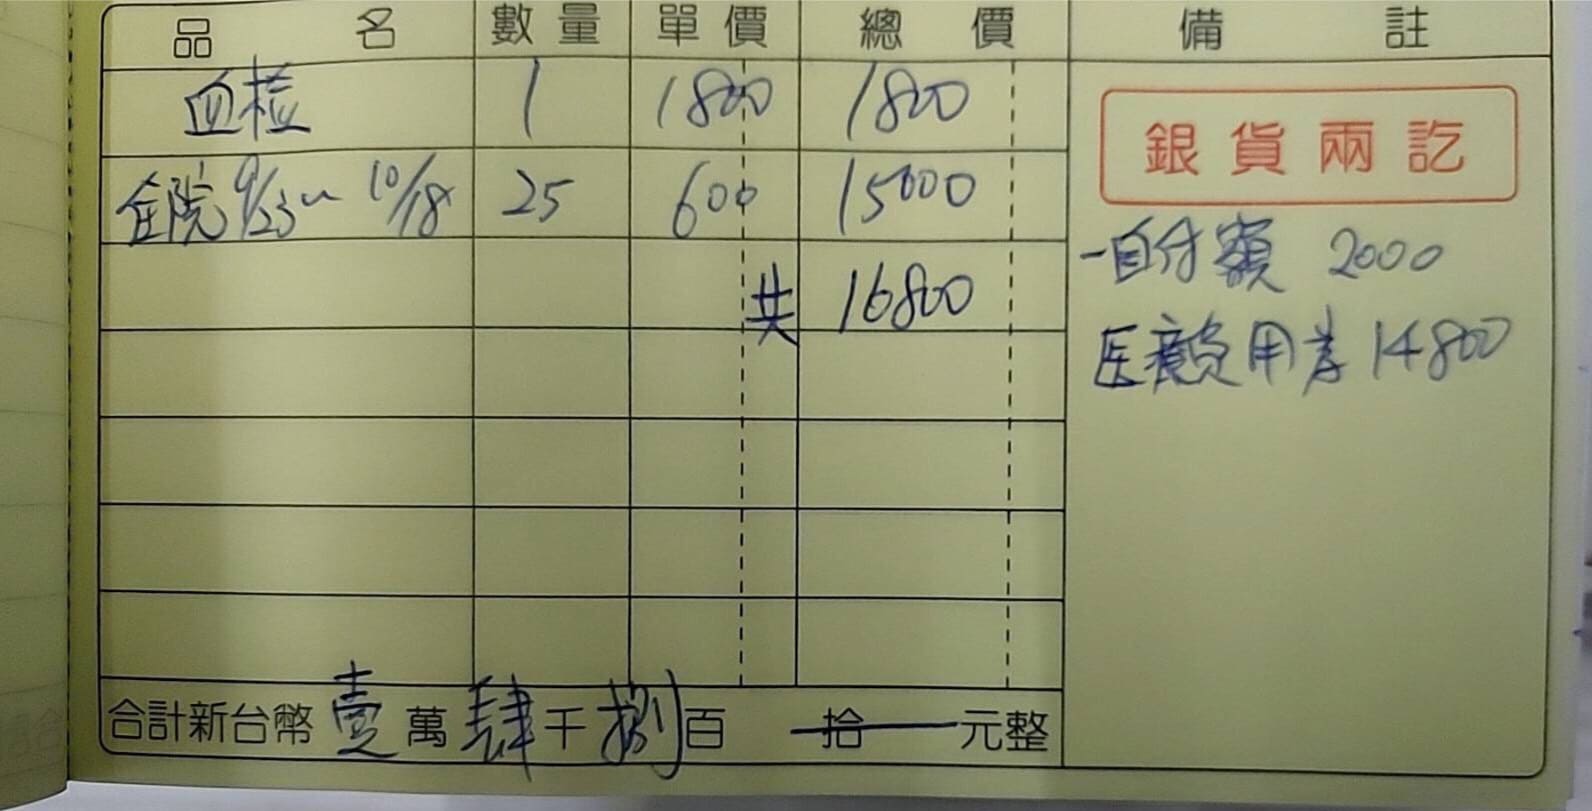 品名 數量 單價 總價 備註
血檢 1 1800 1800
銀貨兩訖
住院 9/23~10/18 25 600 15000
-自付額 2000
共 16800
医療費用券 14800
合計新台幣壹萬肆千捌百拾元整